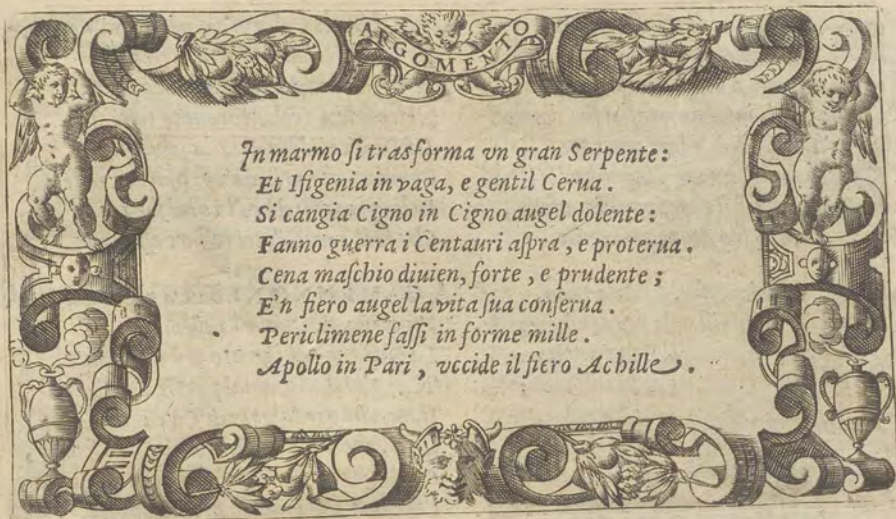 ARGOMENTO
In marmo ſi trasforma vn gran Serpente:
Et Ifigenia in vaga, e gentil Cerua.
Si cangia Cigno in Cigno augel dolente:
Fanno guerra i Centauri aſpra, e proterua.
Cena maſchio diuien, forte, e prudente;
E'n fiero augel la vita ſua conſerua.
Periclimene faſſi in forme mille.
Apollo in Pari, vccide il fiero Achille.